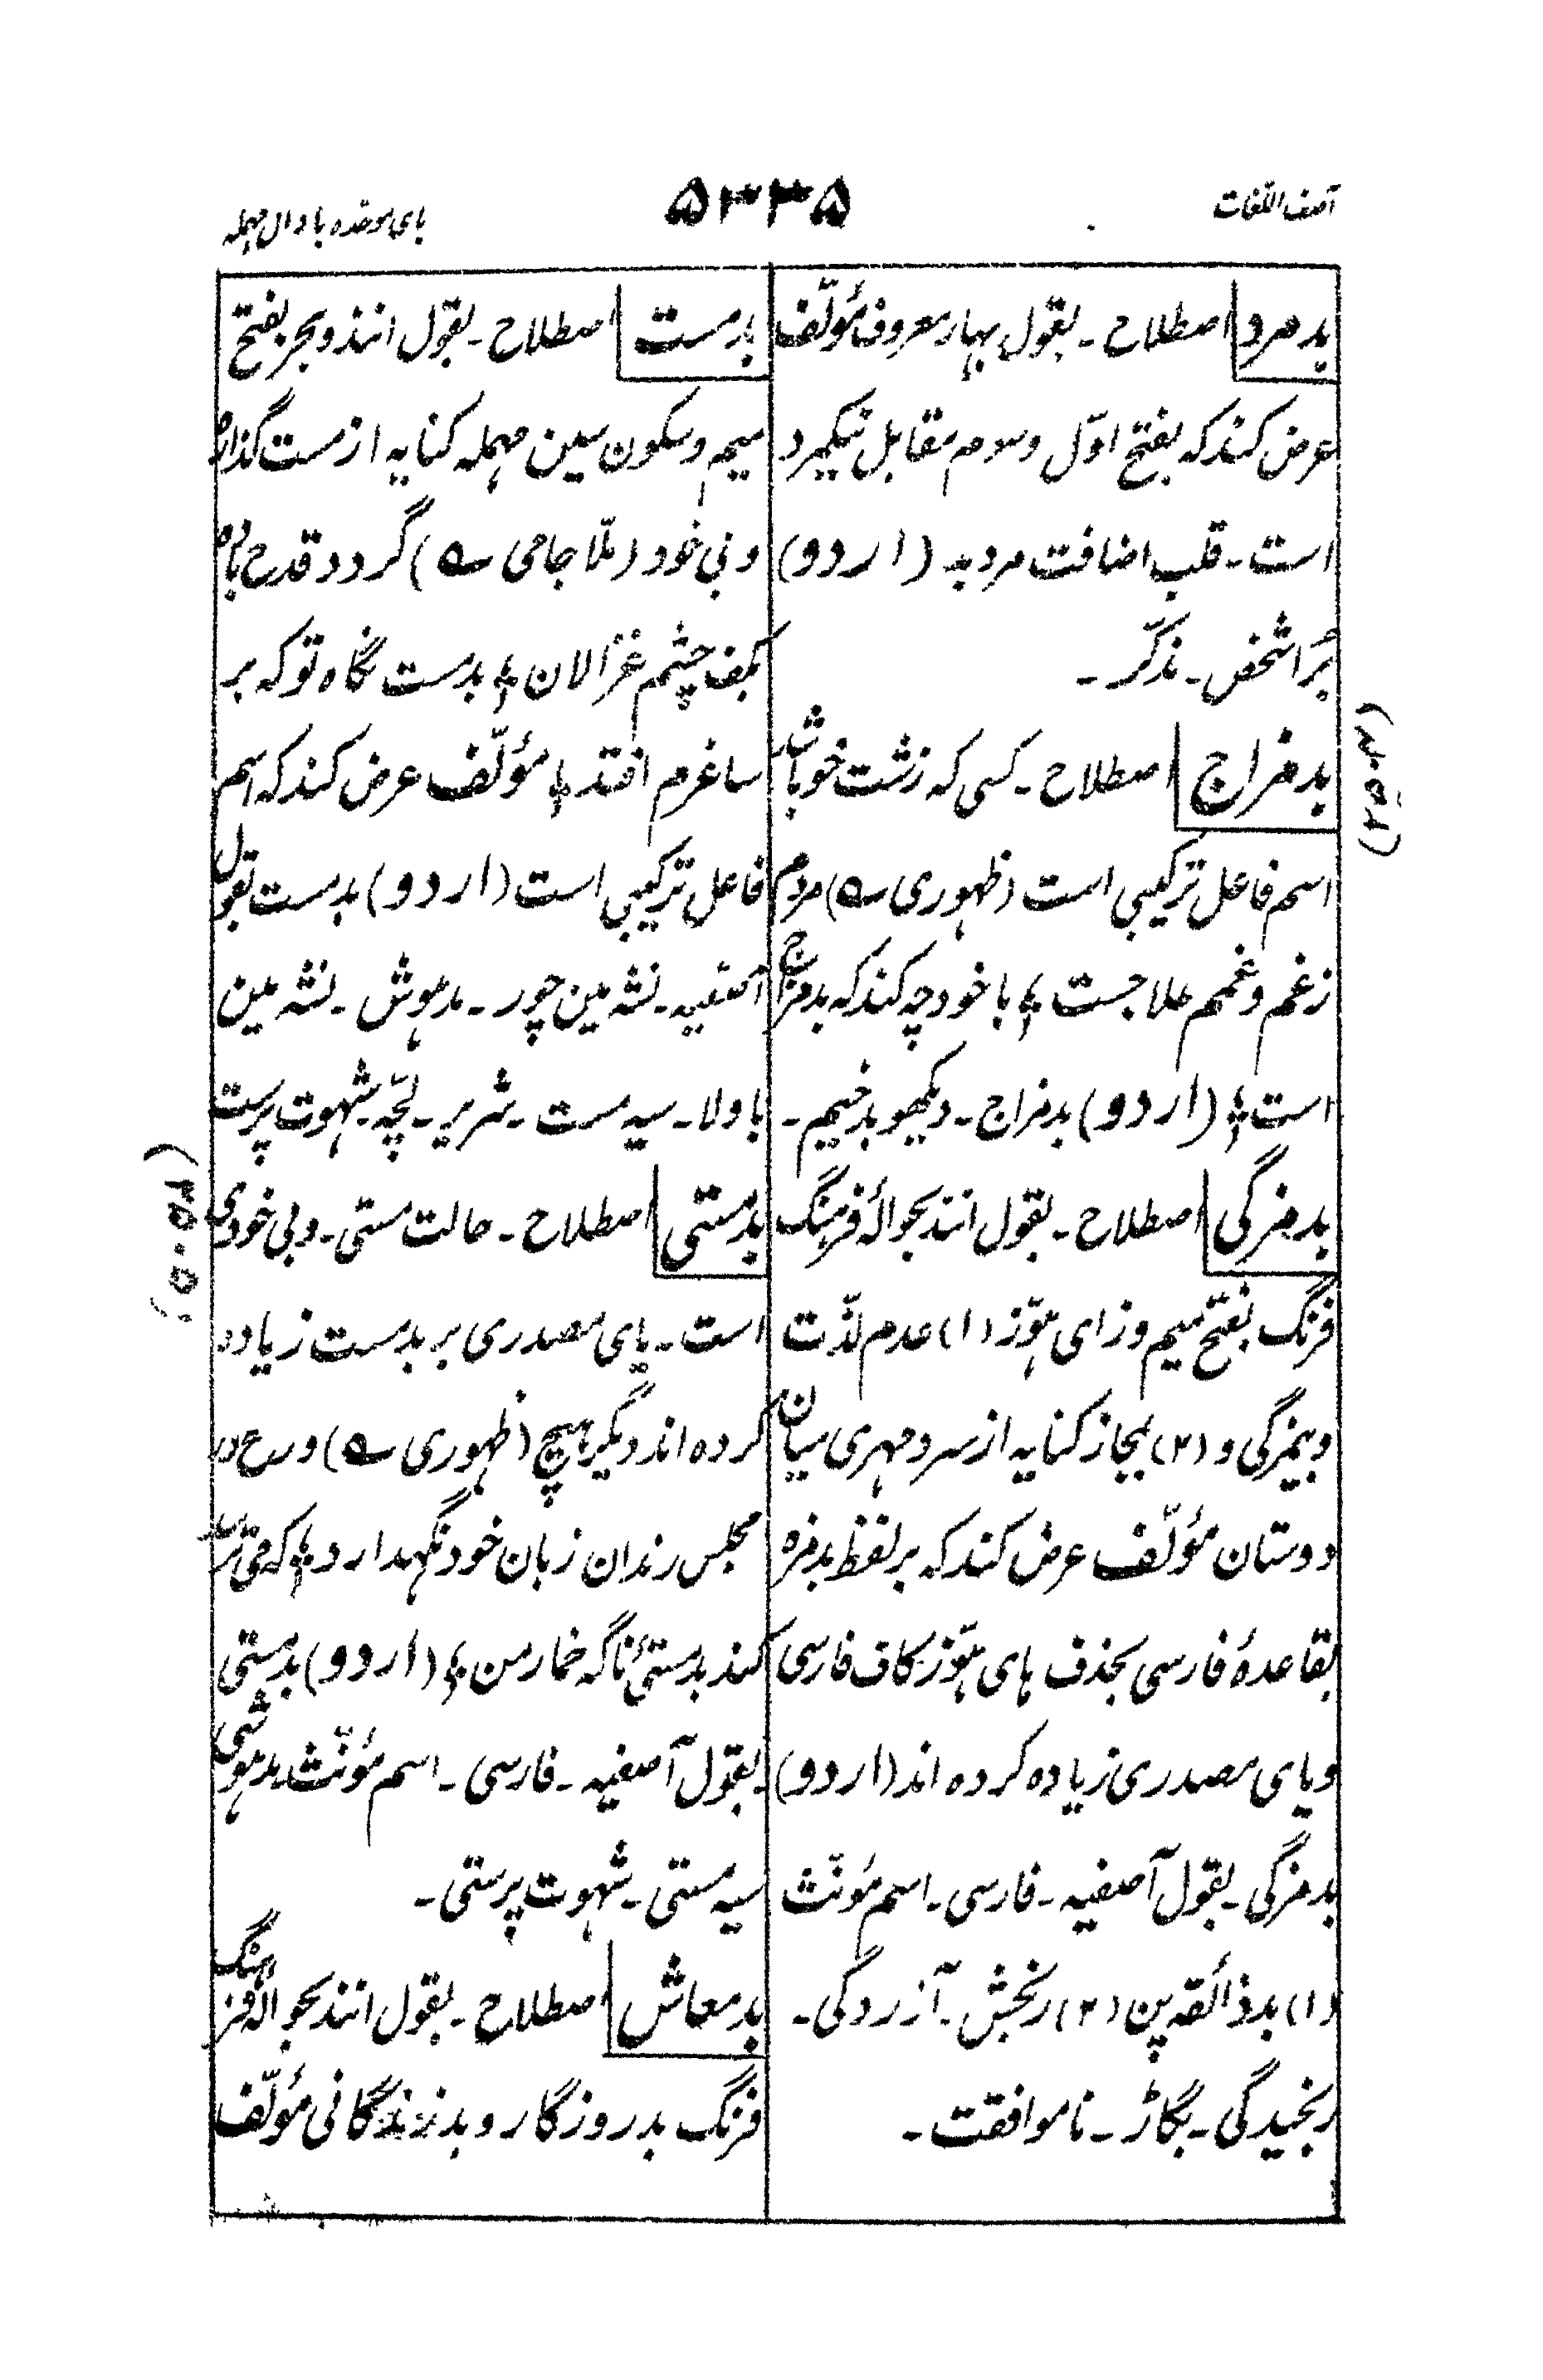 آصف اللغات
۵۳۳۵
بای موحّده با دال مهمله
بدمرد اصطلاح ۔ بقول بہار معروف مؤلّف
عرض کند که بفتح اوّل و سوم مقابل نیکمرد
است ۔ قلب اضافت مرد بد (اردو)
بُرا شخص ۔ مذکّر ۔
بدمزاج اصطلاح ۔ کسی که زشت خو باشد
اسم فاعل ترکیبی است (ظهوری ؎) مردم
زغم و غمم علاجست ؛ با خود چه کند که بدمزاج
است ؛ (اردو) بدمزاج ۔ دیکھو بدخیم ۔
بدمزگی اصطلاح ۔ بقول انند بحوالۂ فرہنگ
فرنگ بفتح میم و زای ہوّز (۱) عدم لذّت
و بیمزگی و (۲) بمجاز کنایه از سرد مهری میان
دوستان مؤلّف عرض کند که بر لفظ بدمزه
بقاعدۂ فارسی بحذف های ہوّز کاف فارسی
و یای مصدری زیاده کرده اند (اردو)
بدمزگی ۔ بقول آصفیہ ۔ فارسی ۔ اسم مؤنّث
(۱) بدذائقہ پن (۲) رنجش ۔ آزردگی ۔
رنجیدگی ۔ بگاڑ ۔ ناموافقت ۔
بدمست اصطلاح ۔ بقول انند و بحر بفتح
میم و سکون سین مهمله کنایه از مست گذاره
و بی خود (ملّا جامی ؎) گردد قدح باده
بکف چشم غزالان ؛ بدمست نگاه تو که بر
ساغرم افتد ؛ مؤلّف عرض کند که اسم
فاعل ترکیبی است (اردو) بدمست بقول
آصفیہ ۔ نشہ مین چور ۔ مدہوش ۔ نشہ مین
باولا ۔ سیہ مست ۔ شریر ۔ لچّہ ۔ شہوت پرست
بدمستی اصطلاح ۔ حالت مستی ۔ و بی خودی
است ۔ یای مصدری بر بدمست زیاده
کرده اند دیگر هیچ (ظهوری ؎) ورع در
مجلس رندان زبان خود نگهدارد ؛ که می ترسد
کند بدمستیٔ ناگه خمار من ؛ (اردو) بدمستی
بقول آصفیہ ۔ فارسی ۔ اسم مؤنّث ۔ مدہوشی
سیہ مستی ۔ شہوت پرستی ۔
بدمعاش اصطلاح ۔ بقول انند بحوالۂ فرہنگ
فرنگ بدروزگار و بدزندگانی مؤلّف